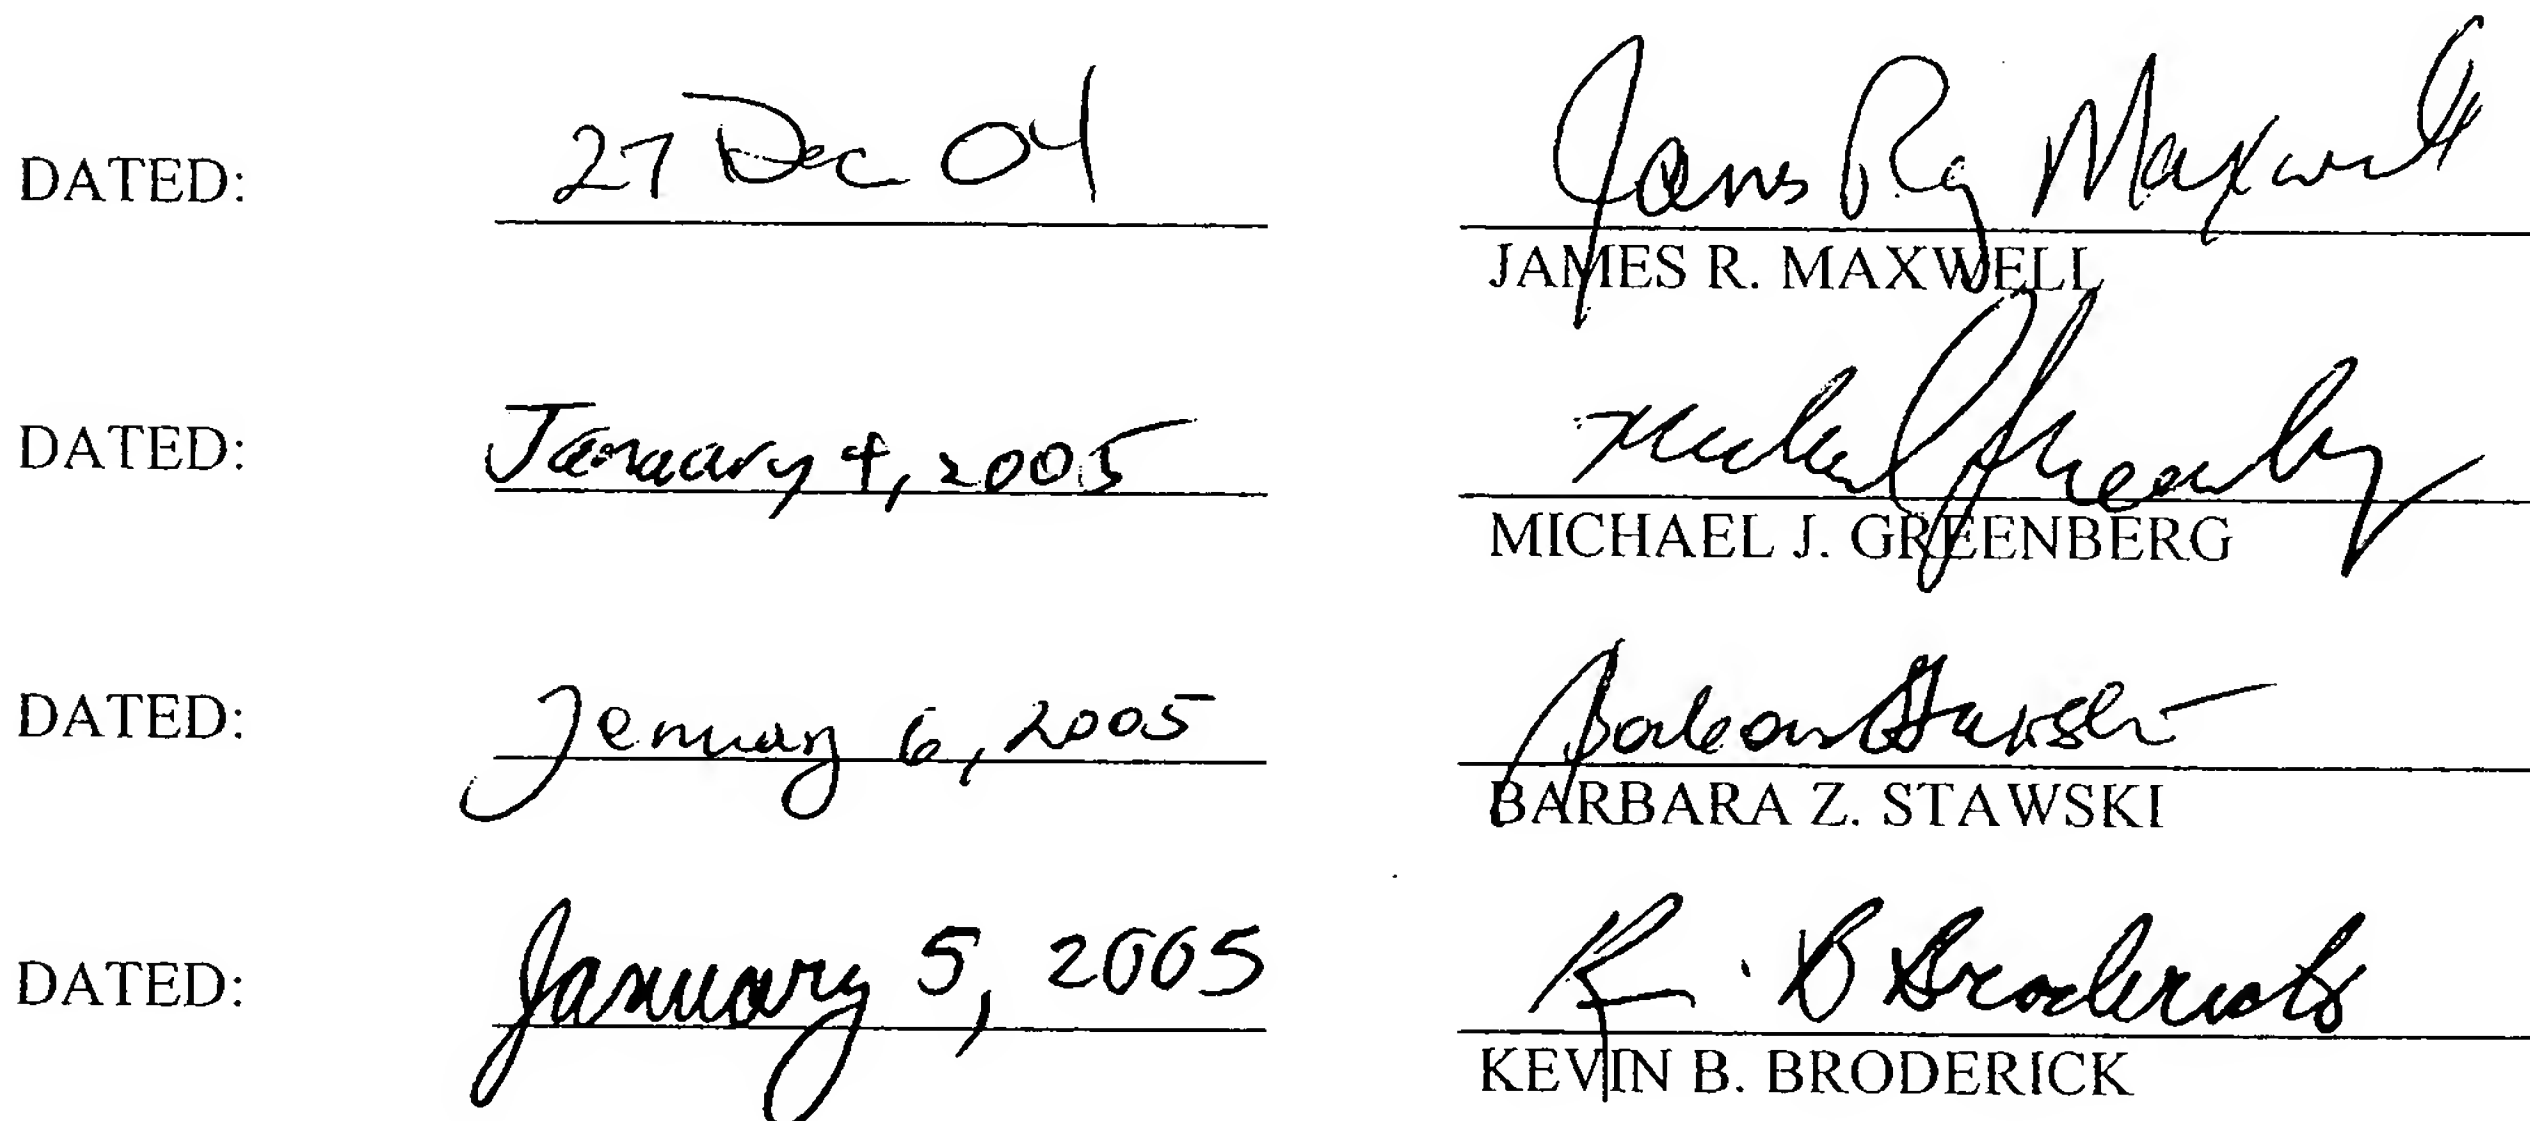 DATED: 27 Dec 04 James Ray Maxwell
JAMES R. MAXWELL
DATED: January 4, 2005 Michael J Greenberg
MICHAEL J. GREENBERG
DATED: January 6, 2005 Barbara Stawski
BARBARA Z. STAWSKI
DATED: January 5, 2005 K B Broderick
KEVIN B. BRODERICK